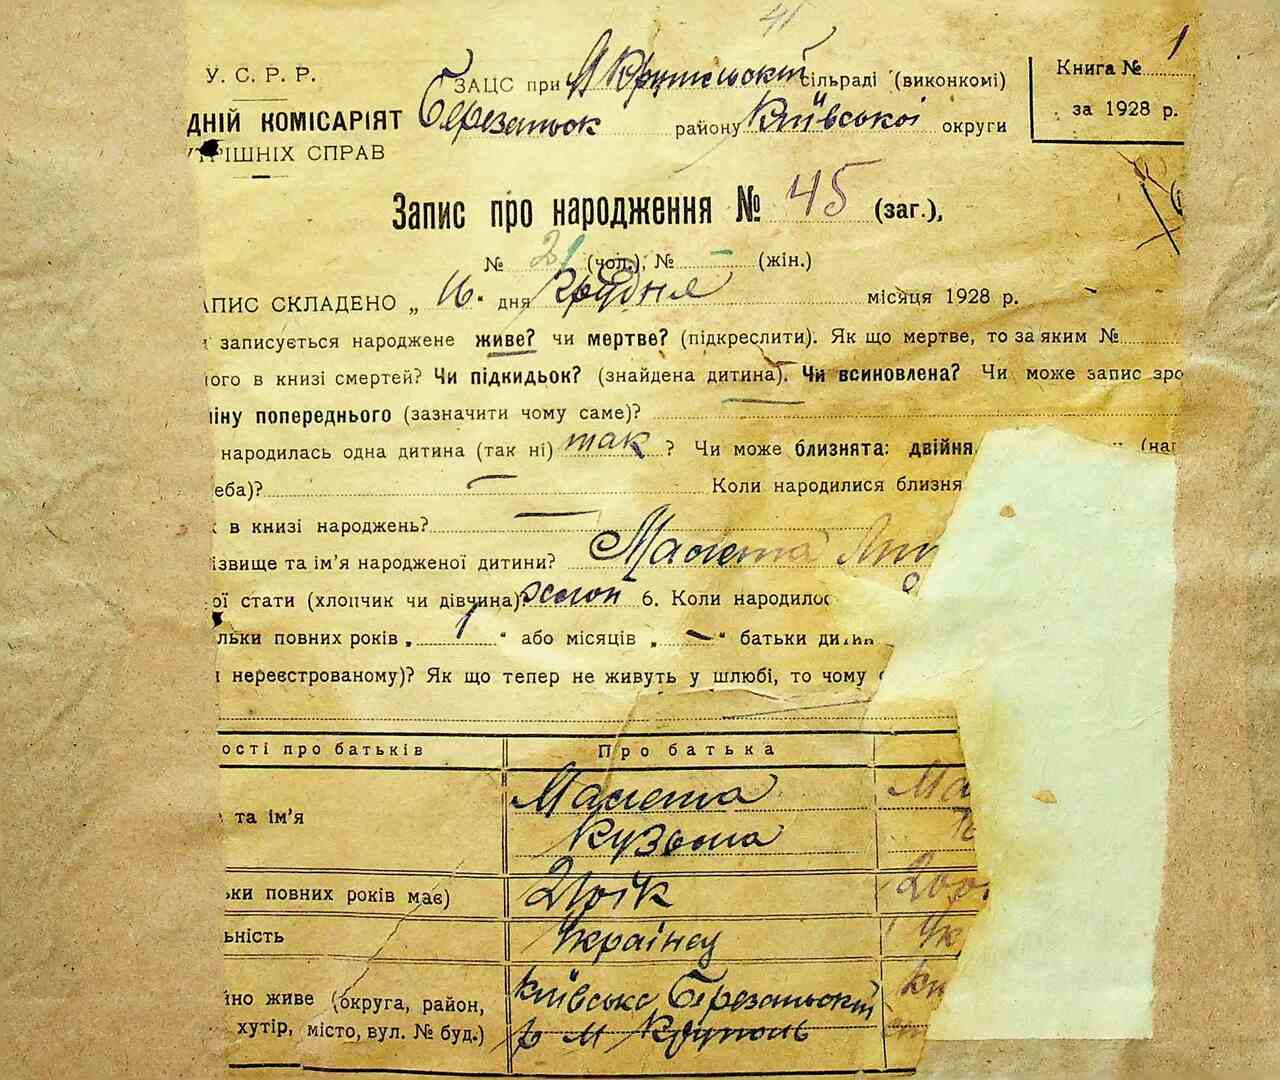 41
У. С. Р. Р.
ДНІЙ КОМІСАРІЯТ
УТРІШНІХ СПРАВ
ЗАЦС при М Крупольскій сільраді (виконкомі)
Березаньск району Київської округи
Книга № 1
за 1928 р.
Запис про народження № 45 (заг.),
№ 21 (чол.), № – (жін.)
АПИС СКЛАДЕНО „ 16 " дня Грудня місяця 1928 р.
записується народжене живе? чи мертве? (підкреслити). Як що мертве, то за яким №
ого в книзі смертей? Чи підкидьок? (знайдена дитина). Чи всиновлена? Чи може запис зро
іну попереднього (зазначити чому саме)?
народилась одна дитина (так ні) так ? Чи може близнята: двійня (на
еба)? – Коли народилися близня
к в книзі народжень? –
ізвище та ім'я народженої дитини? Малета
ої стати (хлопчик чи дівчина)? хлоп 6. Коли народилос
льки повних років „ 1 " або місяців „ – " батьки дитин
нереєстрованому)? Як що тепер не живуть у шлюбі, то чому
ості про батьків Про батька
та ім'я Малета Ма
Кузьма
ьки повних років має) 21 рік 20
ьність Українец Ук
йно живе (округа, район, Київська Березаньскій Ки
хутір, місто, вул. № буд.) р М Круполь